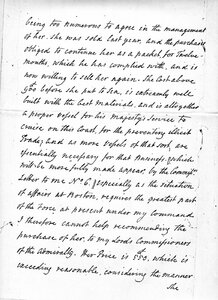 being too numerous to agree in the management
of her. She was sold last year, and the purchaser
obliged to continue her as a packet for Twelve
months, which he has complied with, and is
now willing to sell her again. She Cost above
before She put to Sea, is extremely well
built with the best materials, and is altogether
a proper Vessel for his Majesty's Service to
Cruize on this Coast, for the preventing illicit
Trade; and as more Vessels of that sort, are
essentially necessary for that Business, (which
will be more fully made appear by the
Letter to me No. 6.) especially as the situation
of affairs at Boston, requires the greatest part
of the Force at present under my Command
I therefore cannot help recommending the
purchase of her, to my Lords Commissioners
of the Admiralty. Her Price is which is
exceeding reasonable, considering the manner
She